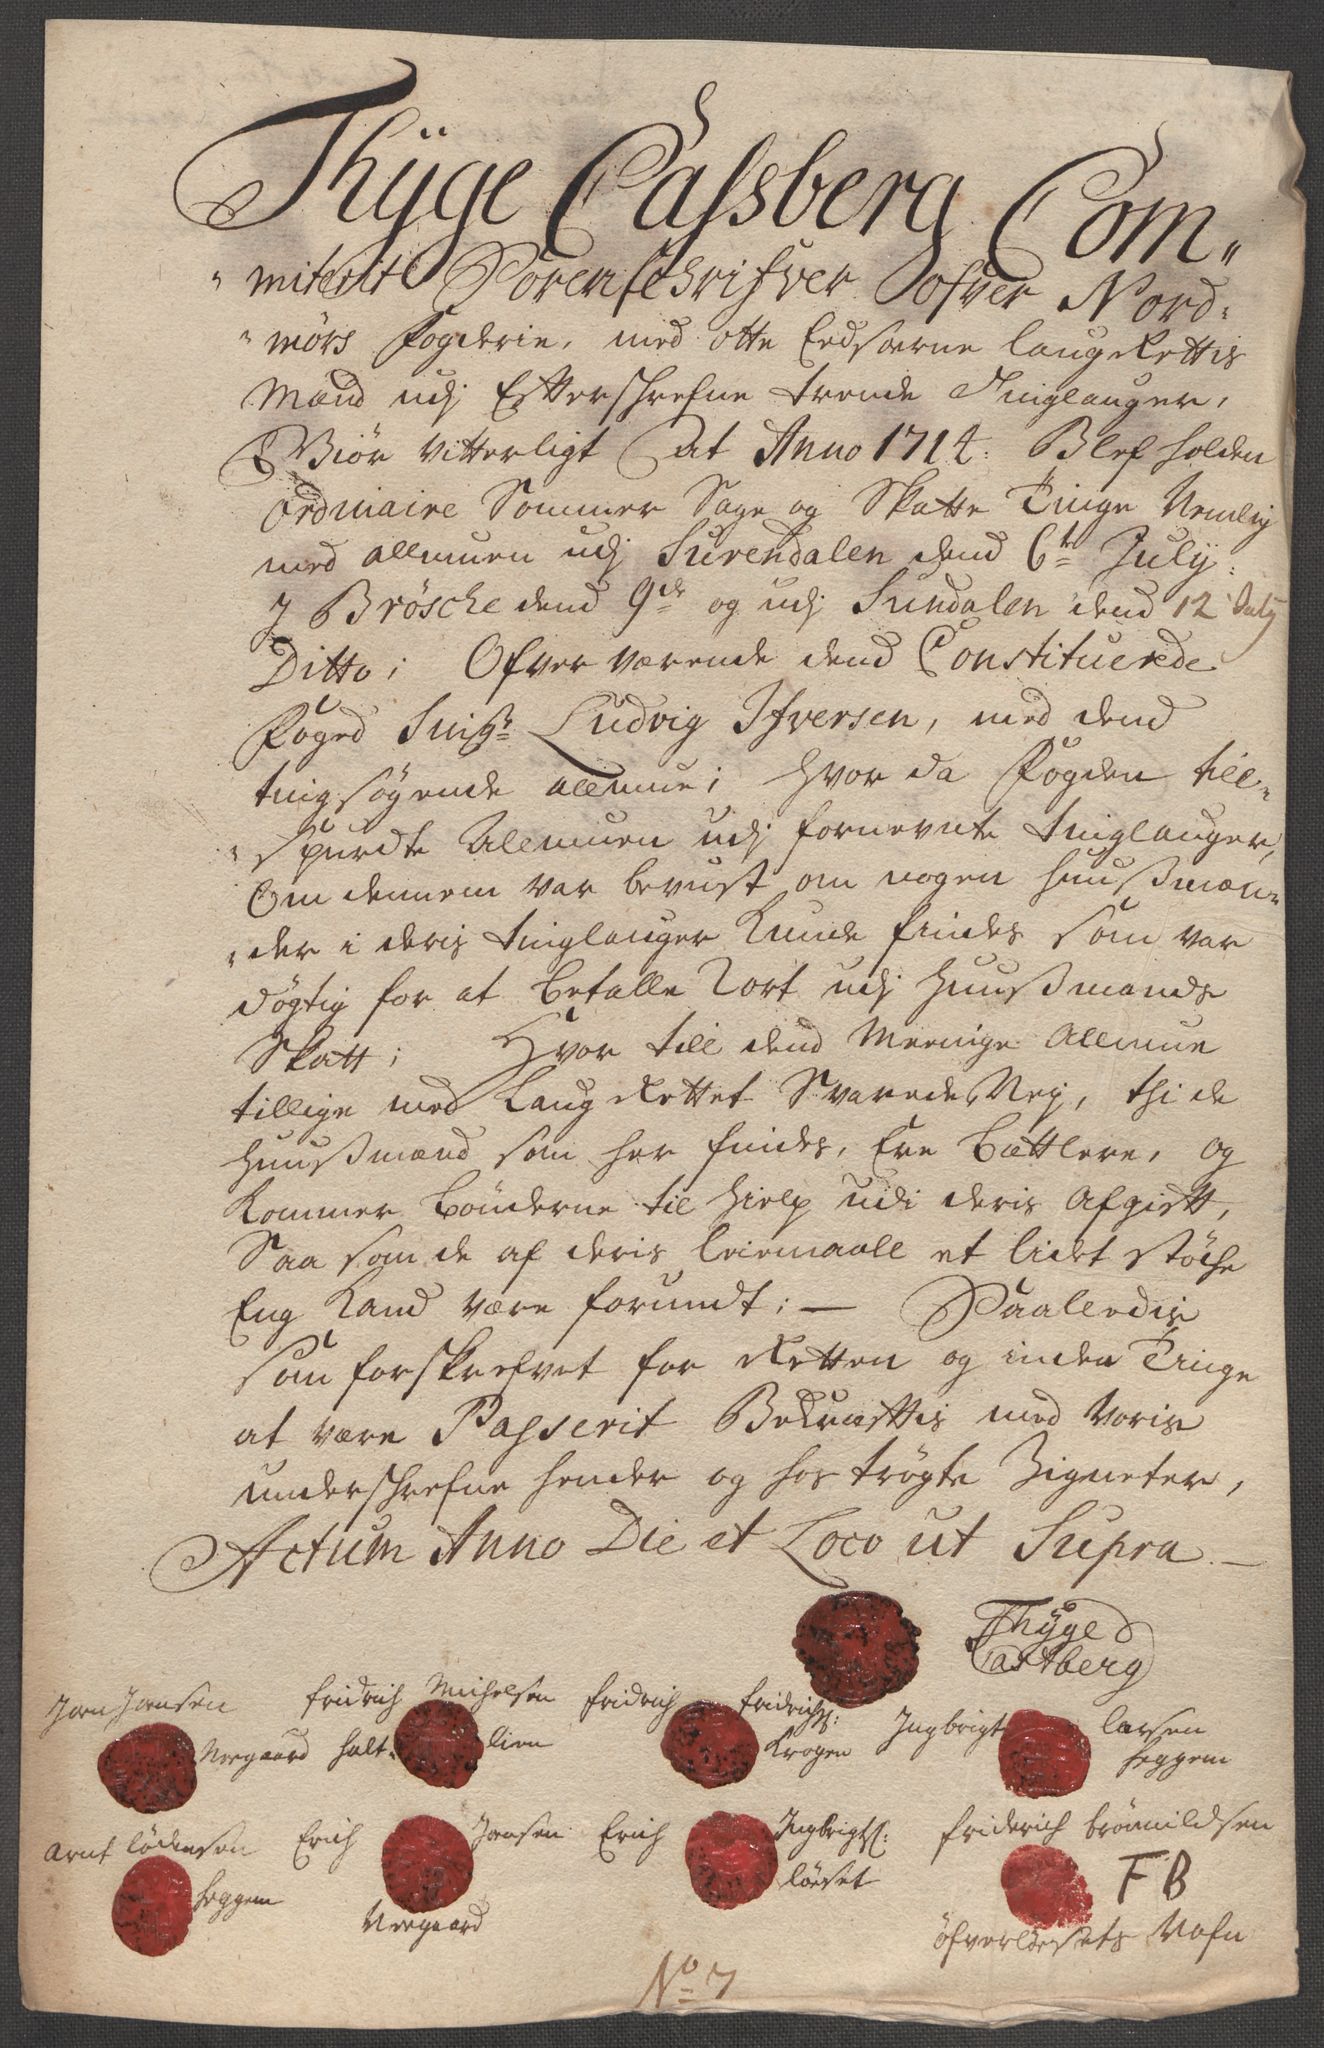 Thÿge Cassberg Com„
„miterit Sorenschrifver Ofver Nord„
„mörs Fogderie, med otte Eedsorne LaugRettis
Mænd udj Effterschrefne trende Tinglauger,
Giör Vitterligt at Anno 1714: Blef holden
Ordinaire Sommer Sage og Skatte Tinge Nemlig
med allmuen udj Surendalen dend 6te July:
J Brösche dend 9de og udj Sundalen dend 12 July
Ditto; Ofverværende dend Constituerede
Foged Snr: Ludvig Ifversen, med dend
tingsögende allmue; Hvor da Fogden till„
„spurdte Allmuen udj fornevnte tinglauger,
Om dennem var bevust om nogen huusmæn„
„der i deris tinglauger kunde findes som var
dögtig for at betalle Sort udj Huusmands
Skatt; Hvor till dend Meenige Allmue
tillige med LaugRettet Svarede, Nej, thi de
Huusmænd som her findes, Ere bettlere, og
kommer bönderne til hielp udi deris Afgift,
Saa som de af deris leiemaall et lidet stöche
Eng Kand være forundt; — Saaledis
som forskrefvet for Retten og inden Tinge
at være Passerit Bekræfftis med Voris
underschrefne hender og hos trögte Zigneter,
Actum Anno Die et Loco ut Supra —
Thyge
Castberg
Joen Joensen Nergaard
fridrich Michelsen halt„lien
fridrich fridrichs: Krogen
Ingbrigt larsen heggem
Arnt lödensen heggem
Erich Joensen Nergaard
Erich Ingbrigtss: löeset
friderich brönnildsen
F B
öfverlöesets Nafn
No 7